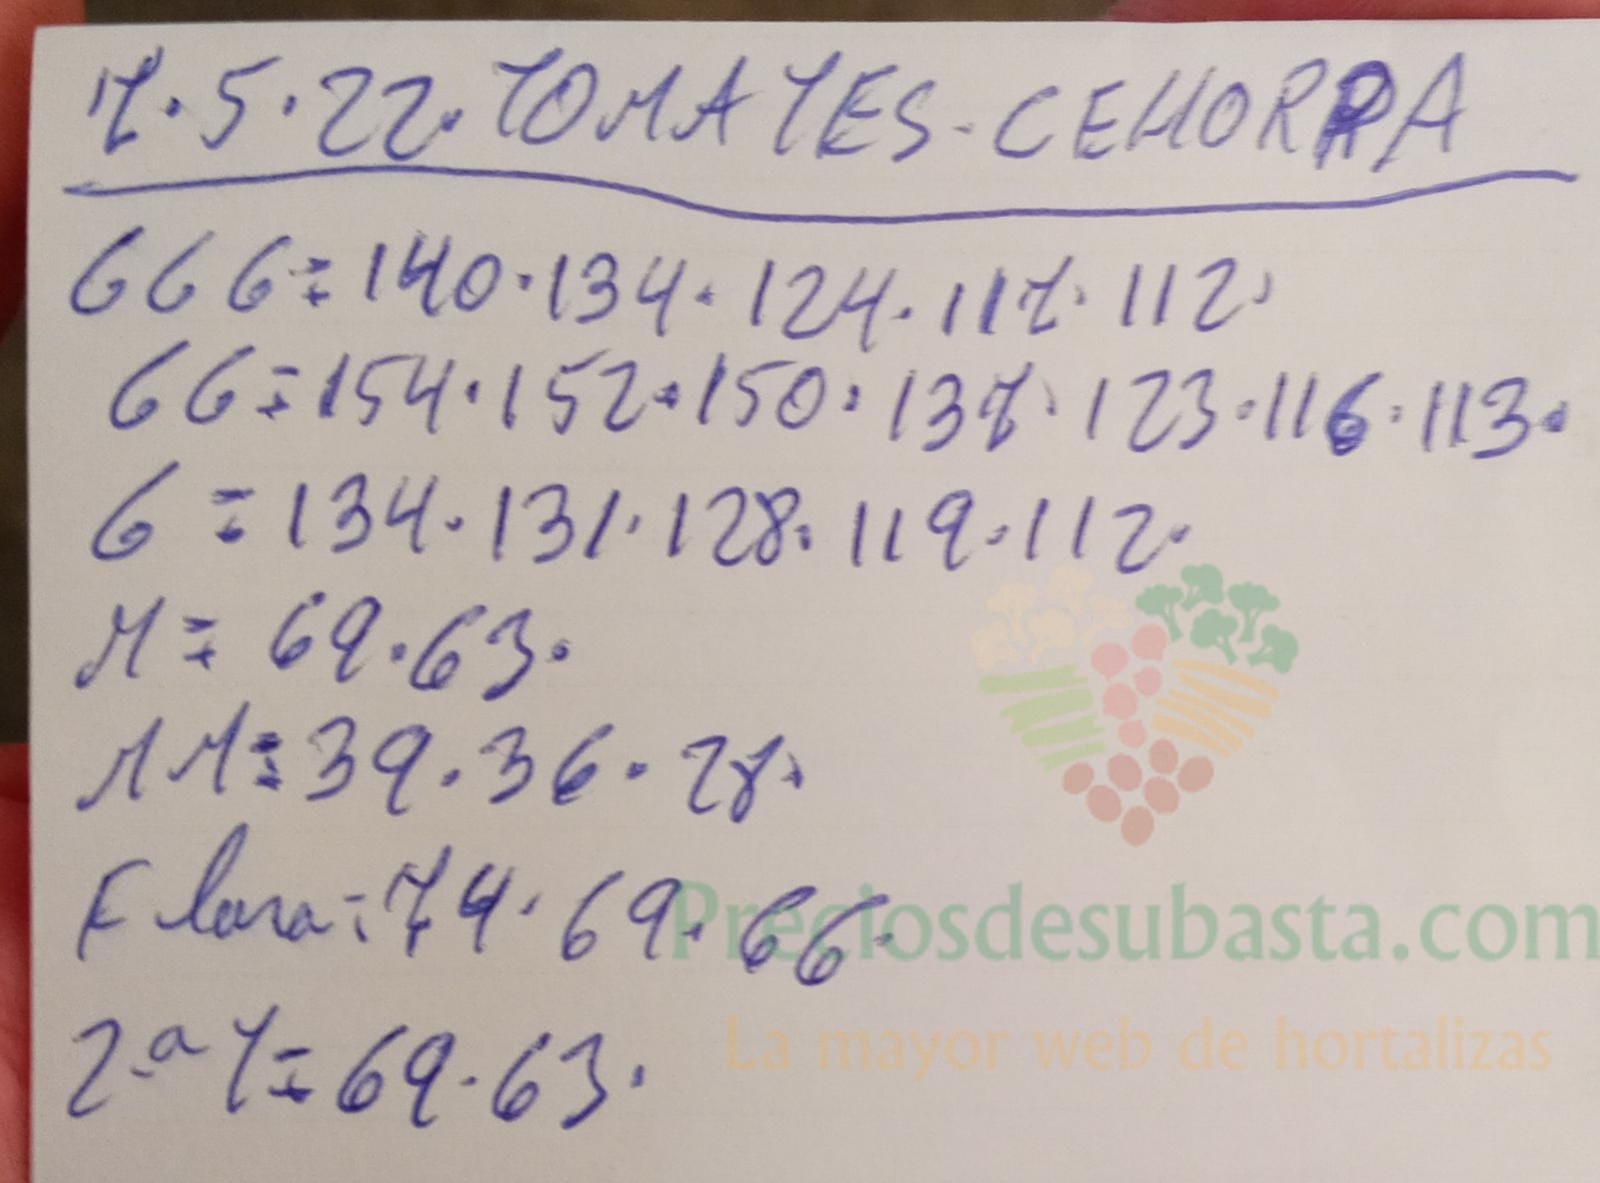 7.5.22. TOMATES - CEHORPA
GGG = 140. 134. 124. 117. 112.
GG = 154. 152. 150. 137. 123. 116. 113.
G = 134. 131. 128. 119. 112.
M = 69. 63.
MM = 39. 36. 28.
F lara = 74. 69. 66.
Preciosdesubasta.com
La mayor web de hortalizas
2.ª T = 69. 63.